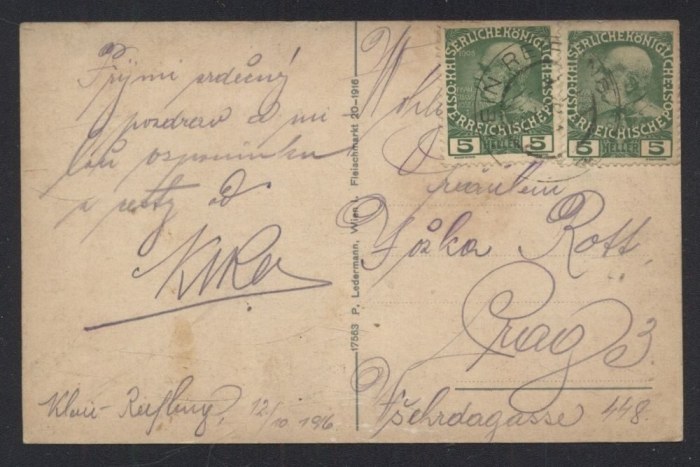 Přijmi srdečný
pozdrav a mi-
lou vzpomínku
z cesty od
12/10 1916
17563 P. Ledermann, Wien I., Fleischmarkt 20-1916
KAISERLICHE KÖNIGLICHE
ÖSTERREICHISCHE POST
5 HELLER 5
KAISERLICHE KÖNIGLICHE
ÖSTERREICHISCHE POST
5 HELLER 5
Fräulein
Rott
Prag 3.
Všehrdagasse 448.